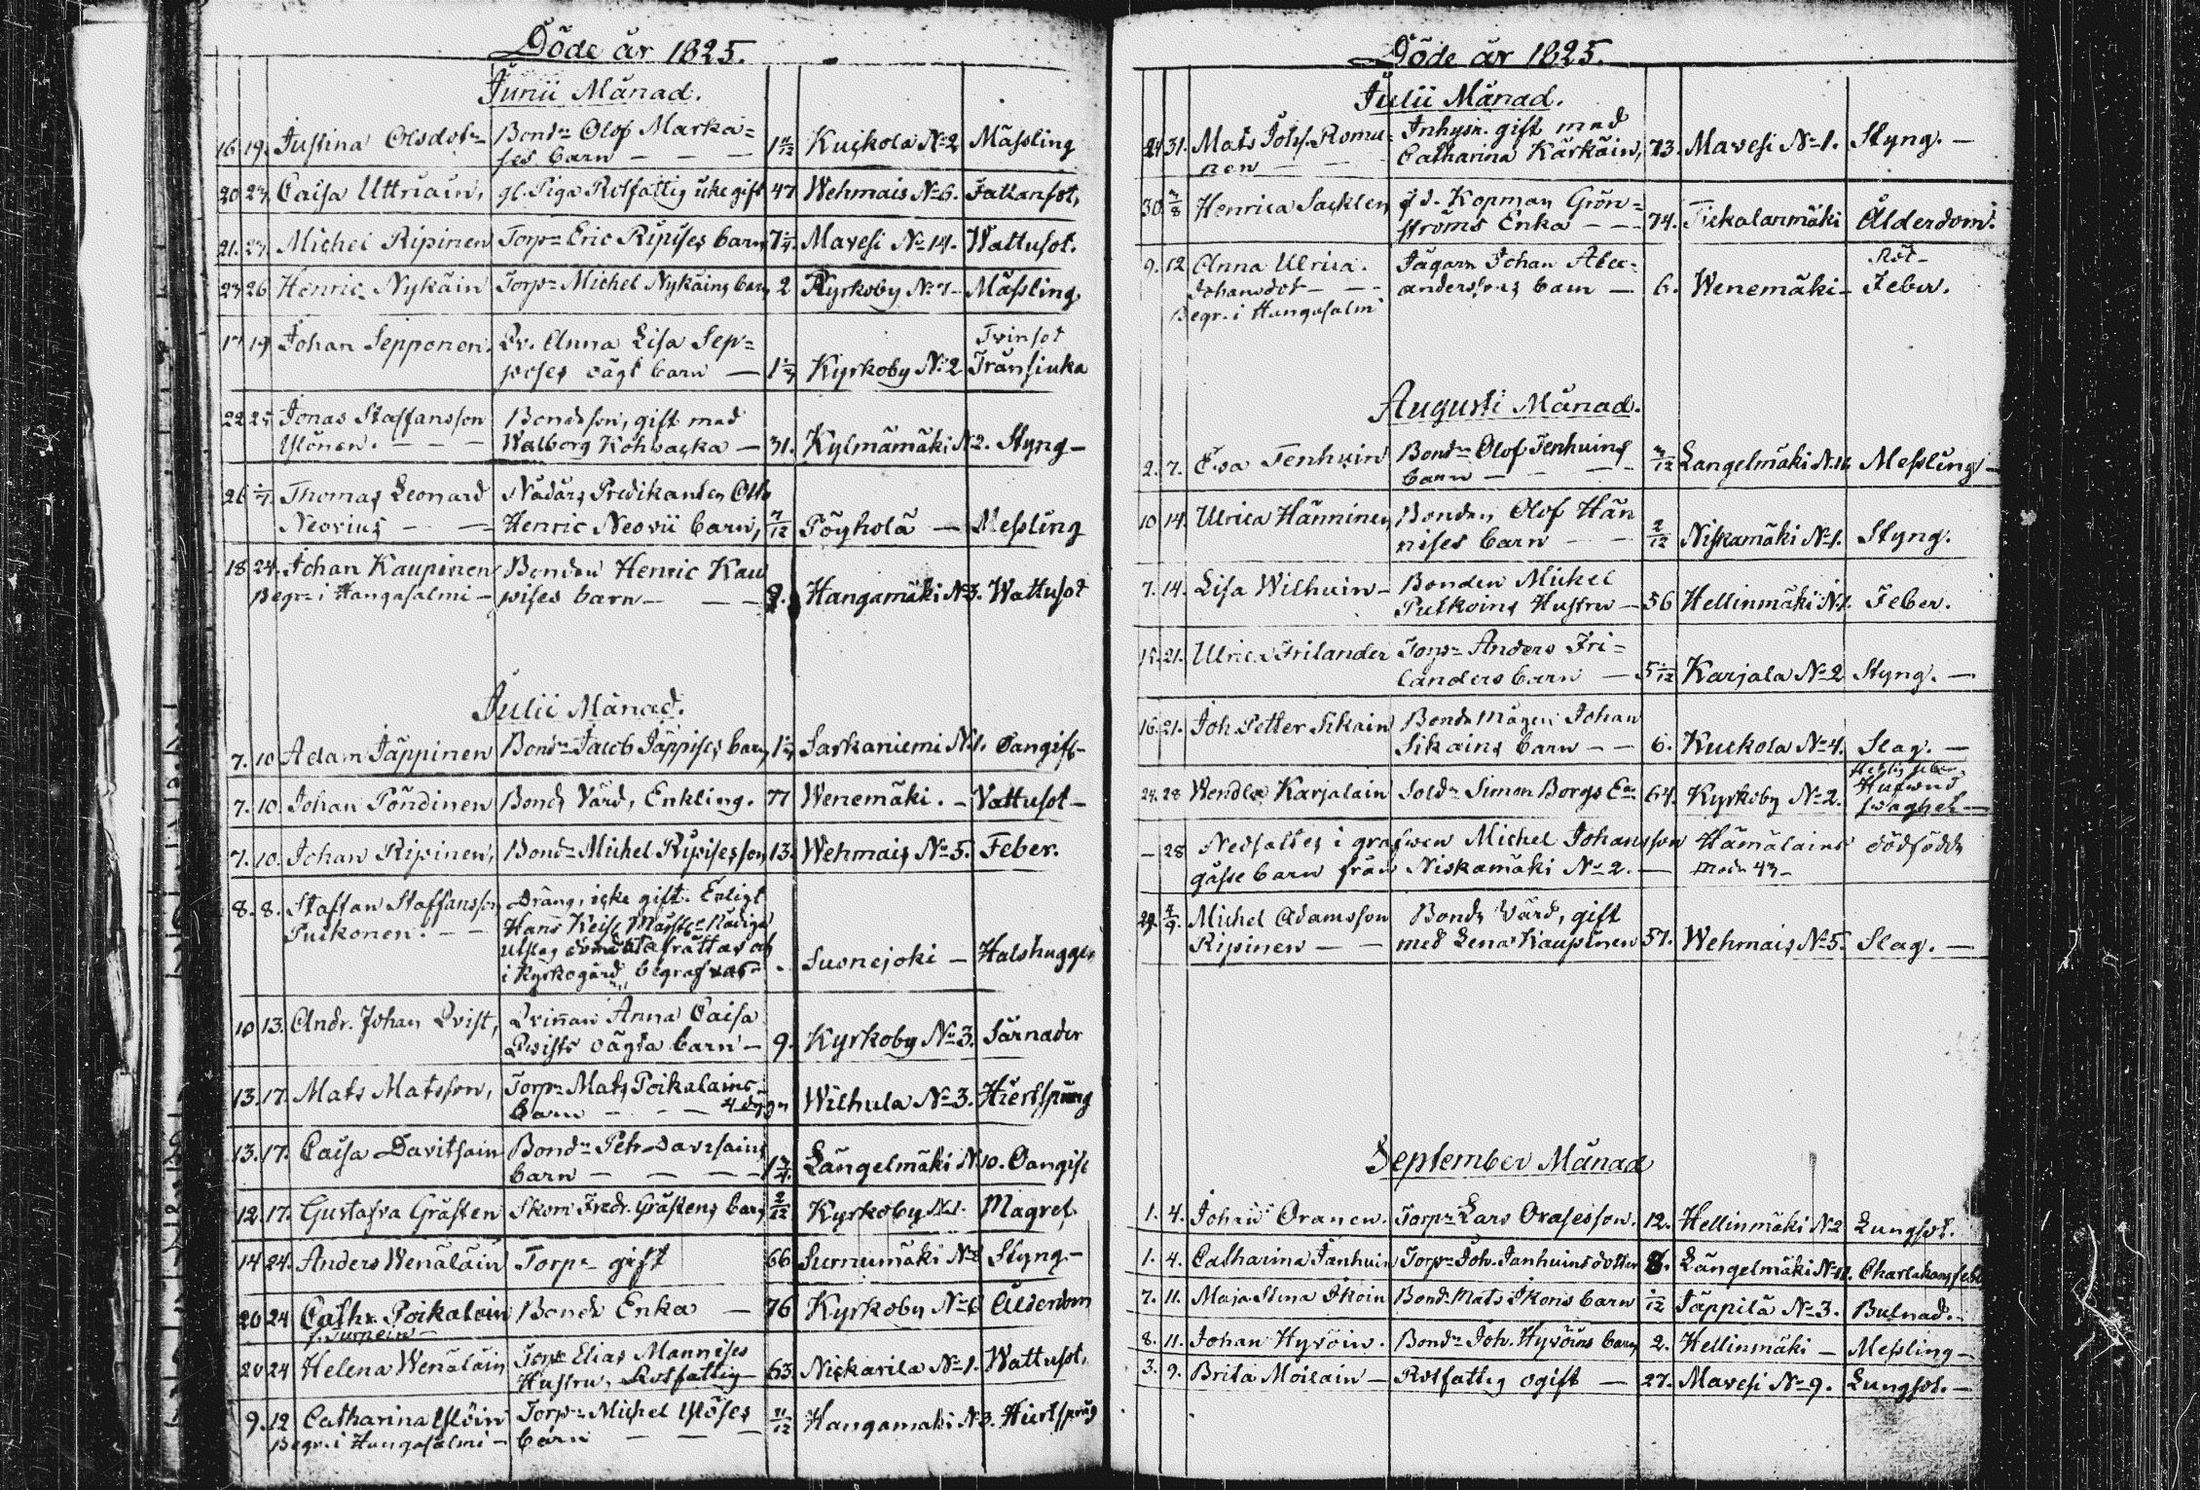 Döde år 1825.
Junii Månad.
16 19. Justina Olsdotr Bondn Olof Marka=
ses barn — — — 1 Kuckola No 2 Mässling
20 23 Caisa Uttriain, gl. Piga Rotfattig icke gift 47 Wehmais No 6. Fallansot,
21. 27. Michel Ripinen Torpn Eric Ripises barn Mavesi No 14. Wattusot.
23 26 Henric Nykäin Torpn Michel Nykäins barn 2 Kyrkoby No 7 — Mässling
17 19 Johan Sepponen. Qv. Anna Lisa Sep= Tvinsot
poses oägt barn — Kyrkoby No 2 Transiuka
22 25 Jonas Staffansson Bondeson, gift med
Ylönen. — — — Walborg Kohvacka — 31. Kylmämäki No 2. Styng —
26 Thomas Leonard Nådårs Predikanten Otto
Neovius — — Henric Neovii barn, 7/12 Pöyholä — Messling
18 24. Johan Kaupinen Bonden Henric Kau
Begr. i Hangasalmi — pises barn — — — 9. Hangamäki No 3. Wattusot
Julii Månad.
7. 10 Adam Jäppinen Bondn Jacob Jäppises barn Saskaniemi No 1. Oangift —
7. 10. Johan Pöndinen Bonds Värd, Enkling. 77 Wenemäki. — Vattusot —
7. 10. Johan Ripinen, Bondn Michel Ripises son 13. Wehmais No 5. Feber.
8. 8. Staffan Staffansson Dräng, icke gift. Enligt
Puikonen. — — Hans Keis. Majsts Nådiga
Utslag afrättas och
i Kyrkogård begrafvas Suonejoki — Halshuggen
10 13. Andr. Johan Qvist, Qvinnan Anna Caisa
Qvists oägta barn — 9. Kyrkoby No 3. Särnader
13. 17. Mats Matsson, Torpn Mats Poikalains
barn — — — 4 dygn Wilhula No 3. Hiertsprång
13. 17. Caisa Davitsain Bondn Petr Davisains
barn — — — — Längelmäki No 10. Oangift
12. 17. Gustafva Gråsten Skom Fredr. Gråstens barn 2/12 Kyrkoby No 1. Magref.
14 24. Anders Wenäläin Torpn gift 66 Surnumäki No 8 Styng —
20 24 Cathr. Poikalain Bonds Enka — 76 Kyrkoby No 6 Ålderdom
f. Turpein —
20 24 Helena Wenäläin Torp. Elias Mannises
Hustru, Rotfattig — 63. Nickarila No 1. Wattusot.
9. 12 Catharina Ylöin Torpn Michel Ylöses
Begr. i Hangasalmi — barn — — — 11/12 Hangamaki No 3. Hiertsprång
Döde år 1825.
Julii Månad.
24 31. Mats Johs. Romu- Inhysn. gift med
nen — — — Catharina Kärkäin, 73. Mavesi No 1. Styng. —
30. 3/8 Henrica Sacklen fd. Kopman Grön=
ströms Enka — — 74. Tickalanmäki Ålderdom.
9. 12 Anna Ulrica. Jägarn Johan Alex= Röt-
Johansdot — — anderssons barn — 6. Wenemäki — Feber.
Begr. i Hangasalmi
Augusti Månad.
2. 7. Eva Tenhuin Bondn Olof Tenhuins
barn — — — Langelmäki No 16 Messling —
10 14. Ulrica Hänninen Bonden Olof Hän
nises barn — — 2/12 Niskamäki No 1. Styng.
7. 14. Lisa Wilhuin — Bonden Michel
Putkoins Hustru — 56 Hellinmäki No 1. Feber.
15. 21. Ulrica Frilander Torpn Anders Fri=
landers barn — Karjala No 2 Styng. —
16. 21. Joh Petter Sikain Bonds Mågen Johan
Sikains barn — — 6. Kuckola No 4. Slag. —
24. 28 Wendla Karjalain Soldn Simon Borgs Ea 64. Kyrkoby No 2. Hufwud
— 28 Nedsattes i grafwen Michel Johansson Hämälains dödfödda
gosse barn från Niskamäki No 2. — Modr 43 —
29. 4/9. Michel Adamsson Bonds Värd, gift
Ripinen — — med Lena Kaupinen 51. Wehmais No 5. Slag. —
September Månad
1. 4. Johan Oranen. Torpn Lars Orasesson. 12. Hellinmäki No 2 Lungsot.
1. 4. Catharina Janhuin Torpn Joh. Janhuins dotter 8. Längelmäki No 11. Charlakansfeber
7. 11. Maja Stina Ikoin Bondn Mats Ikoins barn Jäppilä No 3. Bulnad. —
8. 11. Johan Hyvöin. Bondn Joh. Hyvöins barn 2. Hellinmäki — Messling —
3. 9. Brita Moilain — Rotfattig ogift — 27. Mavesi No 9. Lungsot. —